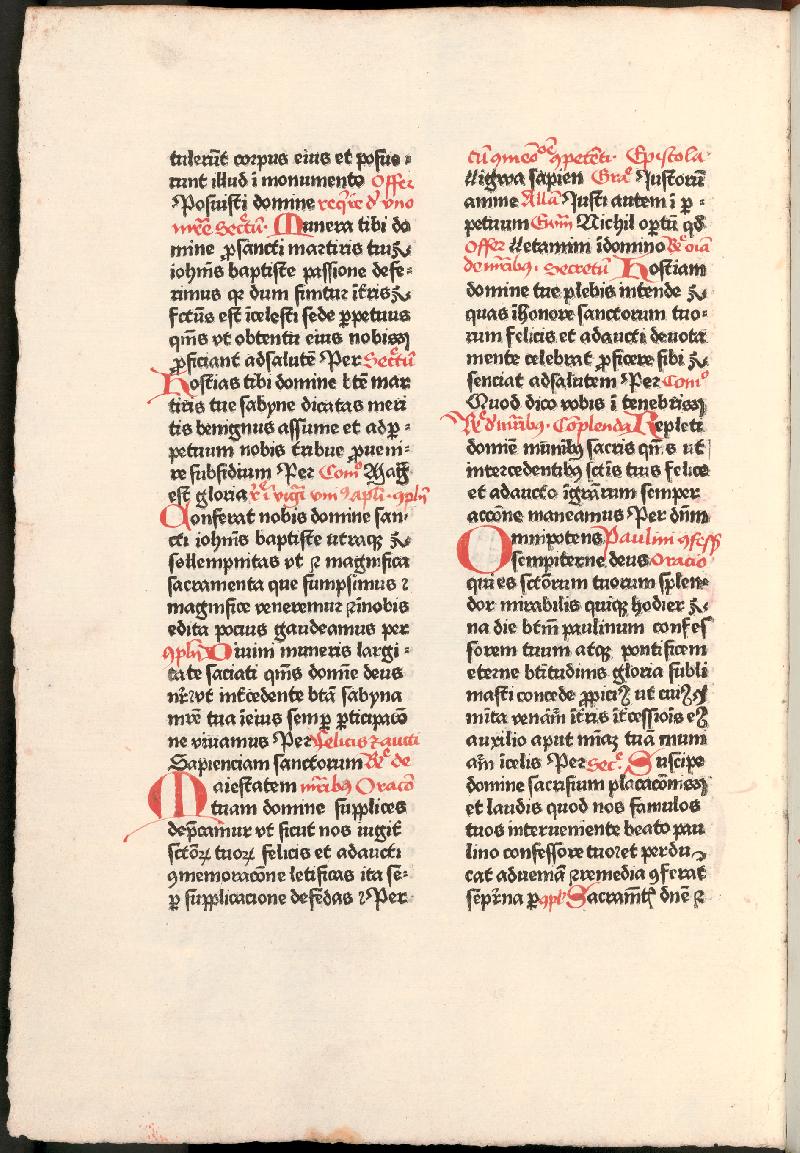 tulerūt corpus eius et posue-
runt illud ī monumento Offer
Posuisti domine require d' vno
mr̄e Secretū Munera tibi do
mine ꝓ sancti martiris tui
iohis baptiste passione defe-
rimus qr dum finitur ītris
fctus est īcelesti sede ꝑpetuus
qm̄s vt obtentu eius nobis
ꝓficiant ad salutē Per Secretū
Hostias tibi domine bt̄e mar
tiris tue sabyne dicatas meri
tis benignus assume et ad ꝑ-
petuum nobis tribue ꝓueni-
re subsidium Per Com̄o Mag̃
est gloria
Conferat nobis domine san-
cti iohis baptiste utraqꝫ
sollempnitas vt ⁊ magnifica
sacramenta que sumpsimus ⁊
magnifice veneremur ⁊ īnobis
edita pocius gaudeamus per
ꝯpln̄ Diuini muneris largi-
tate saciati qm̄s domīe deus
nr̄ vt int̄cedente btā sabyna
mr̄e tua ī eius semꝑ ꝑticipacō
ne viuamus Per Felicis ⁊ aucti
Sapienciam sanctorum Rͤ de
Maiestatem mr̄ibꝰ Oracō
tuam domine supplices
dep̄camur vt sicut nos iugit̄
sctōꝝ tuoꝝ felicis et adaucti
ꝯmemoracōne letificas ita se-
ꝑ supplicacione defēdas ⁊ Per
cū ꝯmeōōe ꝯpetēti Epistola
lligwa sapien Gra Iustorū
anime Alla Iusti autem ī ꝑ-
petuum Ewm̄ Nichil optū qd
Offer lletamini ī domino Rͤ oīa
de mr̄ibus. Secretū Hostiam
domine tue plebis intende
quas ī honore sanctorum tuo-
rum felicis et adaucti deuota
mente celebrat ꝓficere sibi
senciat ad salutem Per Com̄o
Quod dico vobis ī tenebris
Rͤ d' mr̄ibus. Cōplenda Repleti
domīe munībꝰ sacris qm̄s ut
intercedentibꝰ sctīs tuis felice
et adaucto ī gr̄arum semper
accōne maneamus Per dn̄m
Omnipotens Paulini ꝯfess
sempiterne deus Oracio
qui es sctōrum tuorum splen-
dor mirabilis quiqꝫ hodier
na die bt̄m paulinum confes
sorem tuum atqꝫ pontificem
eterne bt̄itudinis gloria subli
masti concede ꝓpiciꝰ ut cuiꝰ
mīta venām̄ ītris īt̄cessiōis eiꝰ
auxilio aput mīaꝫ tuā muni
am̄ īcelis Per Secͤ. Suscipe
domine sacrifium placacōnis
et laudis quod nos famulos
tuos interueniente beato pau
lino confessore tuo ⁊ et perdu
cat ad uemā ⁊ remedia ꝯferat
sēpr̄na ꝑ ꝯpl Sacramt̄ dnē ⁊